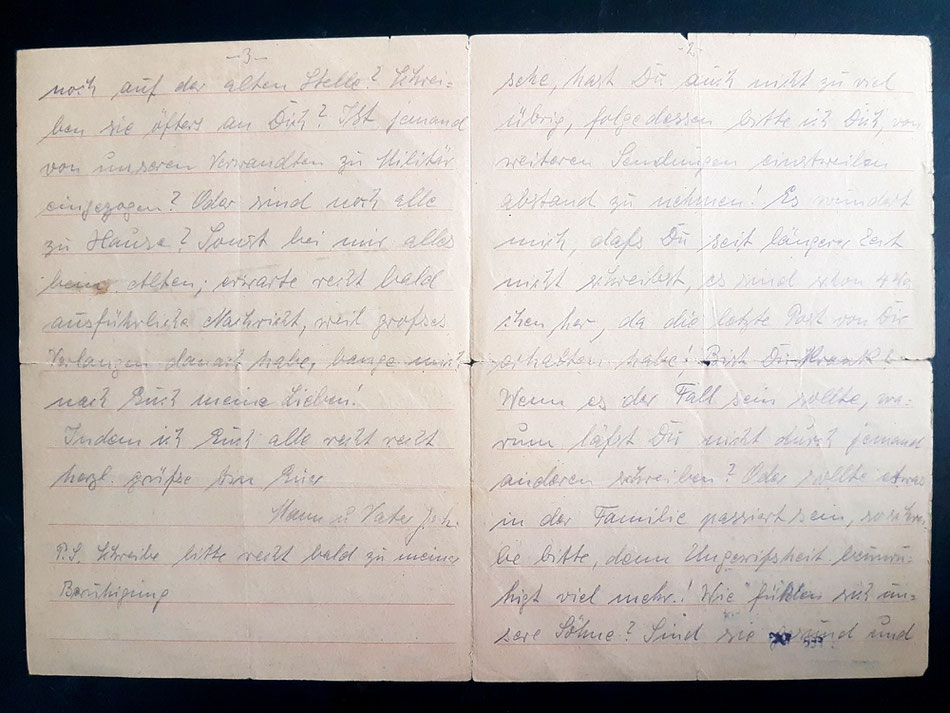 -3-
noch auf der alten Stelle? Schrei-
ben sie öfters an Dich? Ist jemand
von unseren Verwandten zu Militär
eingezogen? Oder sind noch alle
zu Hause? Sonst bei mir alles
beim Alten; erwarte recht bald
ausführliche Nachricht, weil grosses
Verlangen danach habe, bange mich
nach Euch meine Lieben!
Indem ich Euch alle recht recht
herzl. grüße bin Euer
Mann u. Vater Joh.
P.S. Schreibe bitte recht bald zu meiner
Beruhigung
-2-
sehe, hast Du auch nicht zu viel
übrig, folgedessen bitte ich Dich, von
weiteren Sendungen einstweilen
abstand zu nehmen! Es wundert
mich, daß Du seit längerer Zeit
nicht schreibst, es sind schon 4 Wo
chen her, da die letzte Post von Dir
erhalten habe! Bist Du Krank
Wenn es der Fall sein sollte, wa-
rum läßt Du nicht durch jemand
anderen schreiben? Oder sollte etwas
in der Familie passiert sein, so schrei-
be bitte, denn Ungewißheit beunru-
higt viel mehr! Wie fühlen sich un-
sere Söhne? Sind sie gesund und